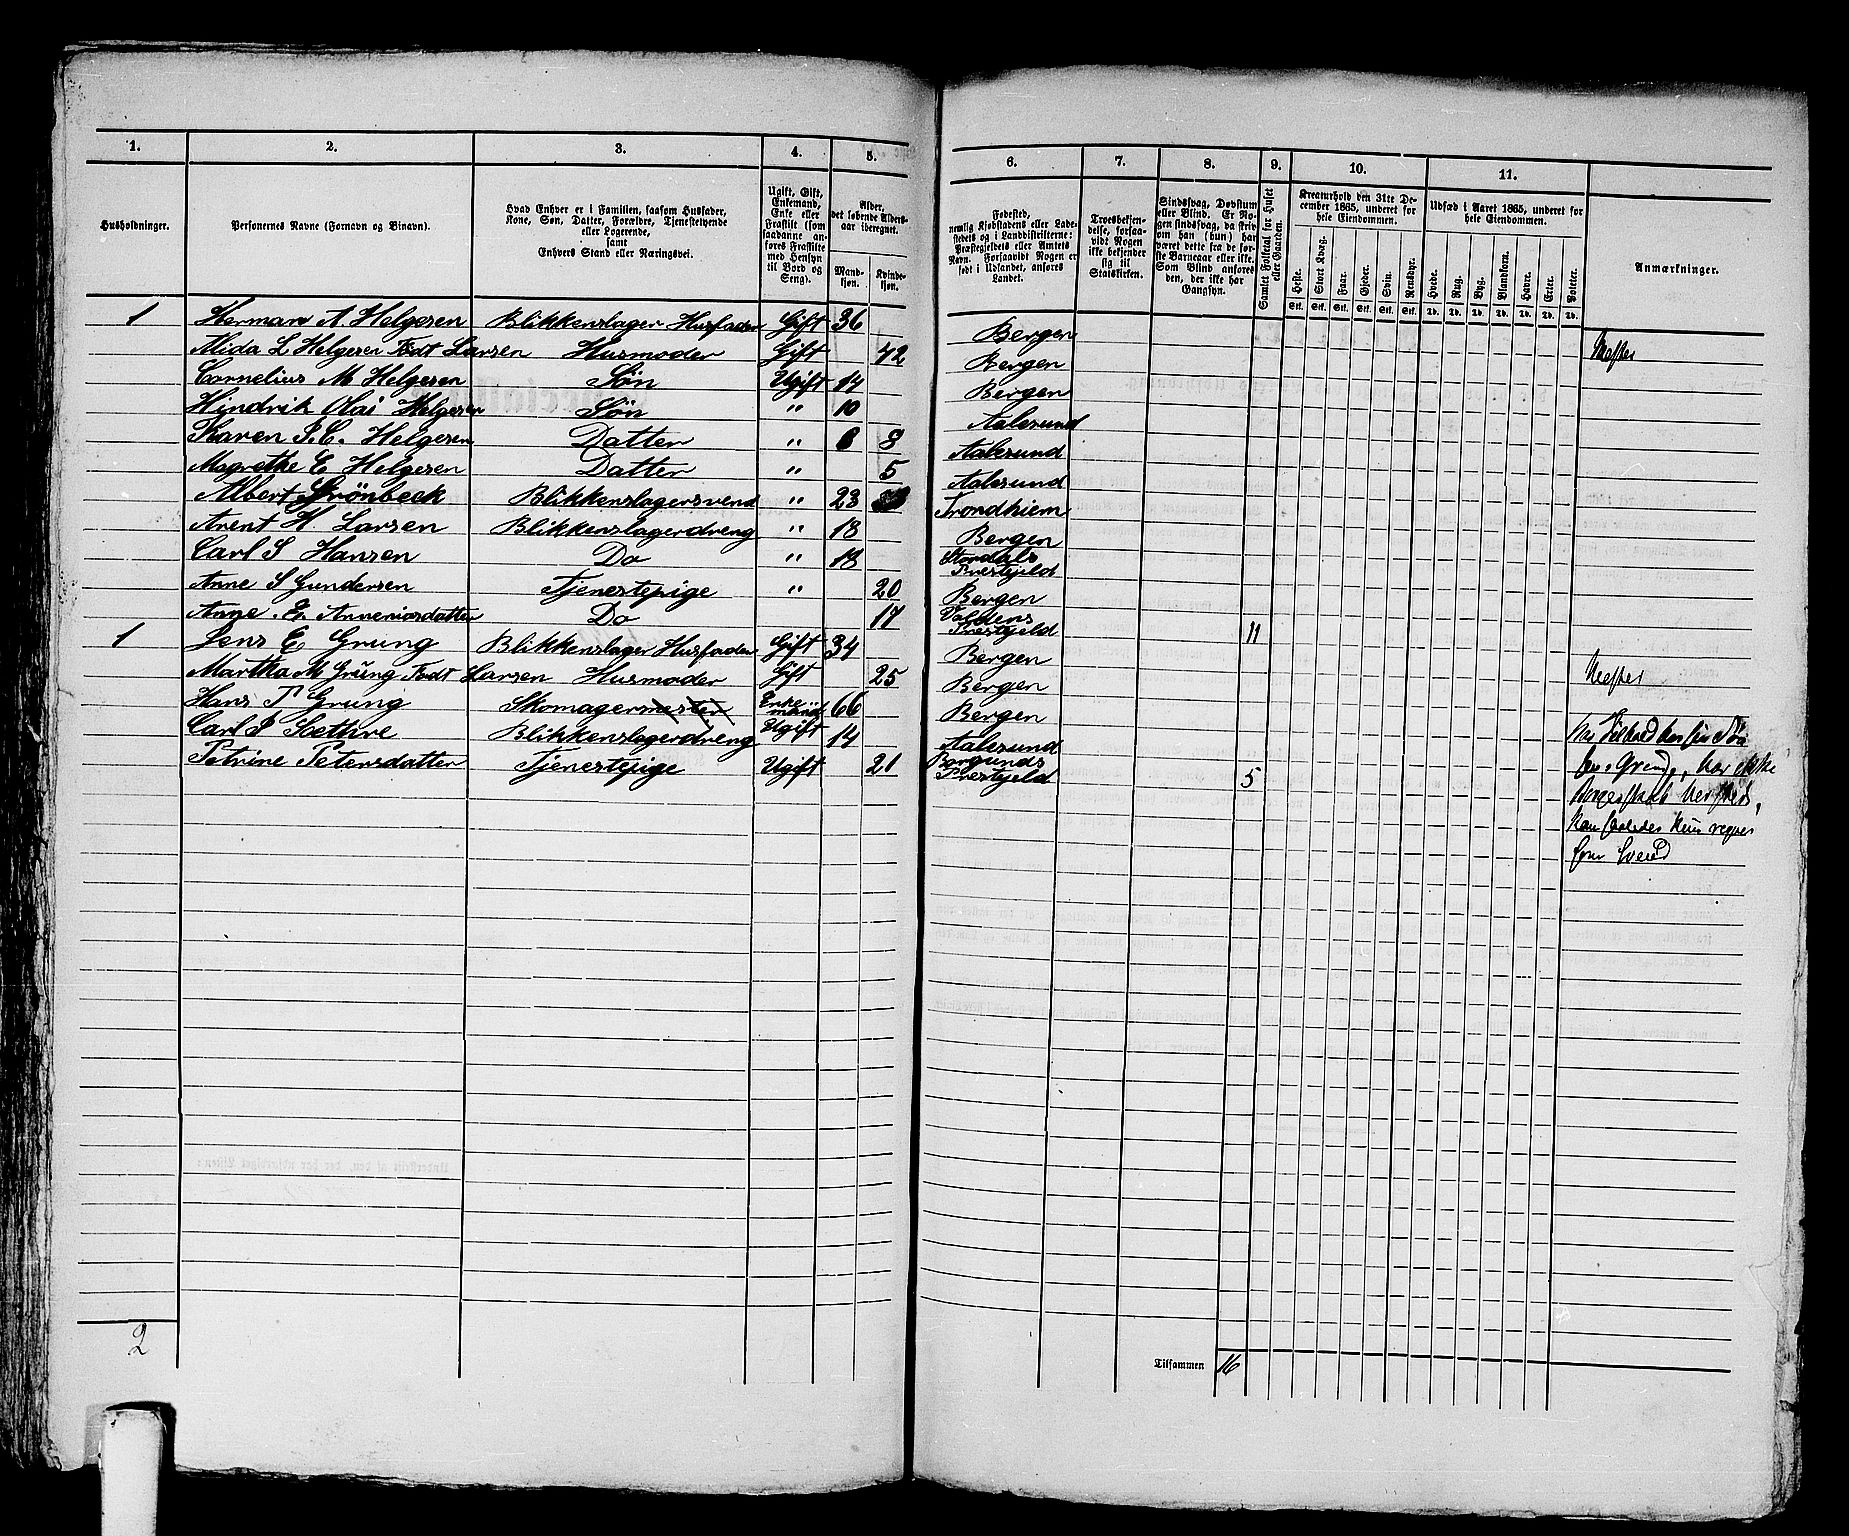 1. 2. 3. 4. 5. 6. 7. 8. 9. 10. 11.
Husholdninger.
Personernes Navne (Fornavn og Binavn).
Hvad Enhver er i Familien, saasom Husfader,
Kone, Søn, Datter, Forældre, Tjenestetyende
eller Logerende,
samt
Enhvers Stand eller Næringsvei.
Ugift, Gift,
Enkemand,
Enke eller
Fraskilt (som
saadanne an-
føres Fraskilte
med Hensyn
til Bord og
Seng).
Alder,
det løbende Alders-
aar iberegnet.
Mand-
kjøn.
Kvinde-
kjøn.
Fødested,
nemlig Kjøbstadens eller Lade-
stedets og i Landdistrikterne:
Præstegjeldets eller Amtets
Navn. Forsaavidt Nogen er
født i Udlandet, anføres
Landet.
Troesbekjen-
delse, forsaa-
vidt Nogen
ikke bekjender
sig til
Statskirken.
Sindssvag, Døvstum
eller Blind. Er No-
gen sindssvag, da skriv
om han (hun) har
været dette fra de før-
ste Barneaar eller ikke.
Som Blind anføres
den, der ikke har
Gangsyn.
Samlet Folketal for Huset
eller Gaarden.
Kreaturhold den 31te De-
cember 1865, underet for
hele Eiendommen.
Heste. Stort Kvæg. Faar. Gjeder. Svin. Rensdyr.
Stk. Stk. Stk. Stk. Stk. Stk.
Udsæd i Aaret 1865, underet for
hele Eiendommen.
Hvede. Rug. Byg. Blandkorn. Havre. Erter. Poteter.
Td. Td. Td. Td. Td. Td. Td.
Anmærkninger.
1 Herman A. Helgesen Blikkenslager Husfader Gift 36 Bergen
Mida L Helgesen Født Larsen Husmoder Gift 42 Bergen Mester
Cornelius M Helgesen Søn Ugift 14 Bergen
Hindrik Olai Helgesen Søn " 10 Aalesund
Karen S. C. Helgesen Datter " 8 Aalesund
Magrethe E Helgesen Datter " 5 Aalesund
Albert Grönbeck Blikkenslagersvend " 23 Trondhiem
Arent H Larsen Blikkenslagerdreng " 18 Bergen
Carl S Hansen Do " 18 Prestgjeld
Anne S Gundersen Tjenestepige " 20 Bergen
Anne. E. Do 17 Prestgjeld 11
1 Jens E Grung Blikkenslager Husfader Gift 34 Bergen
Martha M Grüng Født Larsen Husmoder Gift 25 Bergen Mester
Hans T Grung Skomagermester Enkemand 66 Bergen
Carl J Soethre Blikkenslagerdreng Ugift 14 Aalesund
Petrine Petersdatter Tjenestepige Ugift 21 Borgunds Prestgjeld 5
har ikke
Borgerskab
kan saaledes kun regnes
som Svend
2 Tilsammen 16